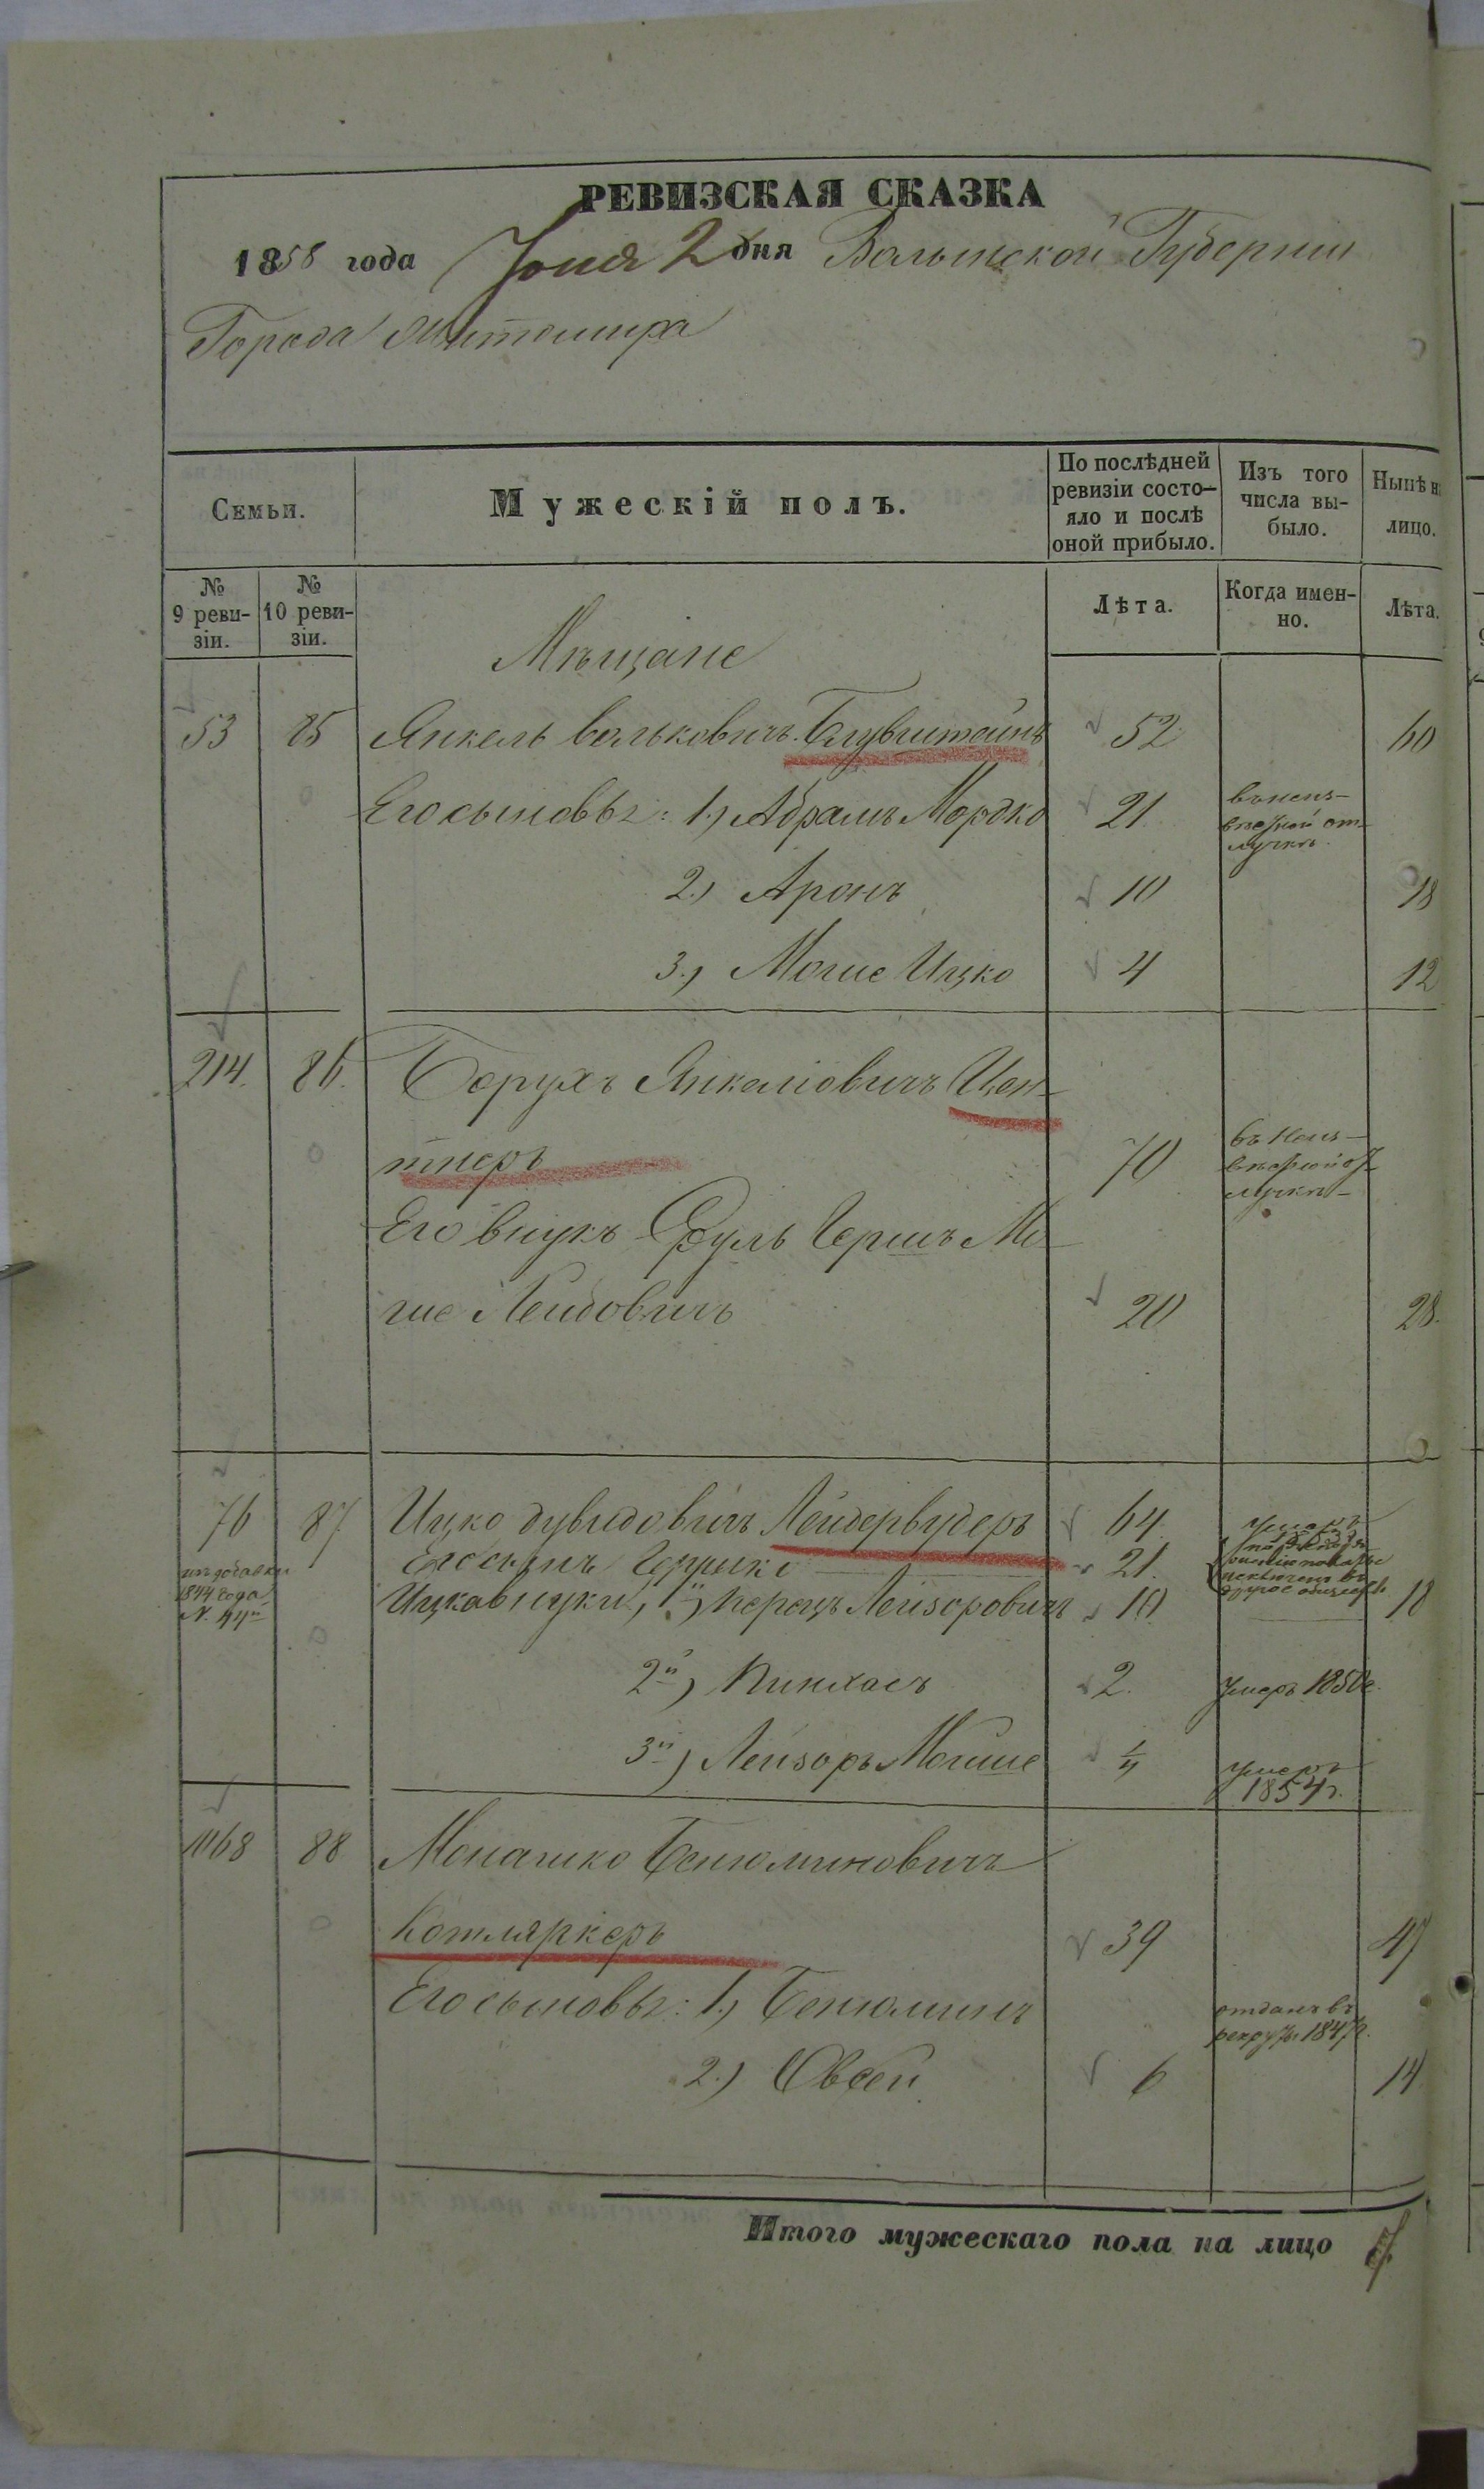 РЕВИЗСКАЯ СКАЗКА
1858 года Іюня 2 дня Волынской Губерніи
Города Житомира
Семьи.
Мужескій полъ.
По послѣдней ревизіи состо-
яло и послѣ
оной прибыло.
Изъ того
числа вы-
было.
Нынѣ н
лицо.
№
9 реви-
зіи.
№
10 реви-
зіи.
Лѣта.
Когда имен-
но.
Лѣта.
Мѣщане
53 85 Янкель Вольковичъ Блувштейнъ 52 60
Его сыновья: 1.) Абрамъ Мордко 21. въ неиз-
вѣстной от-
лучкѣ.
2.) Аронъ 10 18
3.) Мошe Ицко 4 12
214. 86. Борухъ Янкеліовичъ Цен-
тнеръ 70 въ неиз-
вѣстной от-
лучкѣ
Его внукъ Сруль Гершъ Мо-
ше Лейбовичъ 20 28.
76 87 Ицко Дувидовичъ Лейдервудеръ 64. умеръ
изъ добавки
1844 года
Его сынъ 21. исключенъ въ
другое общество
Ицка внуки, 1й) Перецъ Лейзоровичъ 10 18
2й) Пинхасъ 2. умеръ 1850г.
3й) Лейзоръ Мошше 1/4 умеръ
1854г.
1168 88 Монашко Бенюминовичъ
Котляркеръ 39 47
Его сыновья: 1.) Бенюминъ отданъ въ
рекруты 1847г.
2.) Овсей 6 14
Итого мужескаго пола на лицо 7.